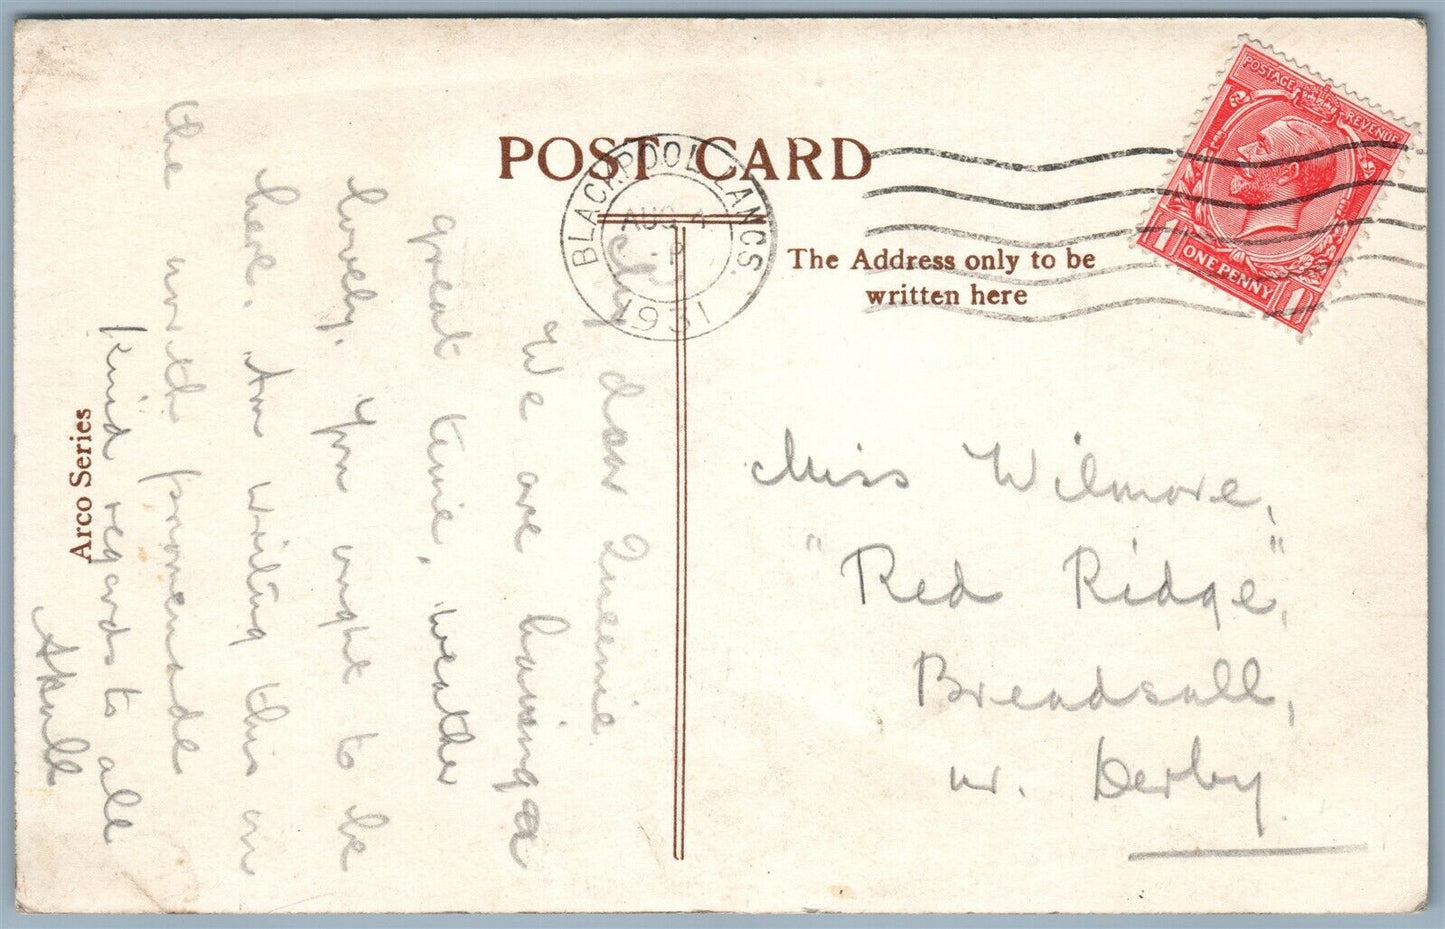 POST CARD
BLACKPOOL, LANCS.
AUG 4
P
1931
POSTAGE REVENUE
1 ONE PENNY 1
The Address only to be
written here
Miss Wilmore,
"Red Ridge",
Breadsall,
nr. Derby.
My dear Queenie
We are having a
great time, weather
lovely. You ought to be
here. Am writing this on
the north promenade
Kind regards to all
Arco Series